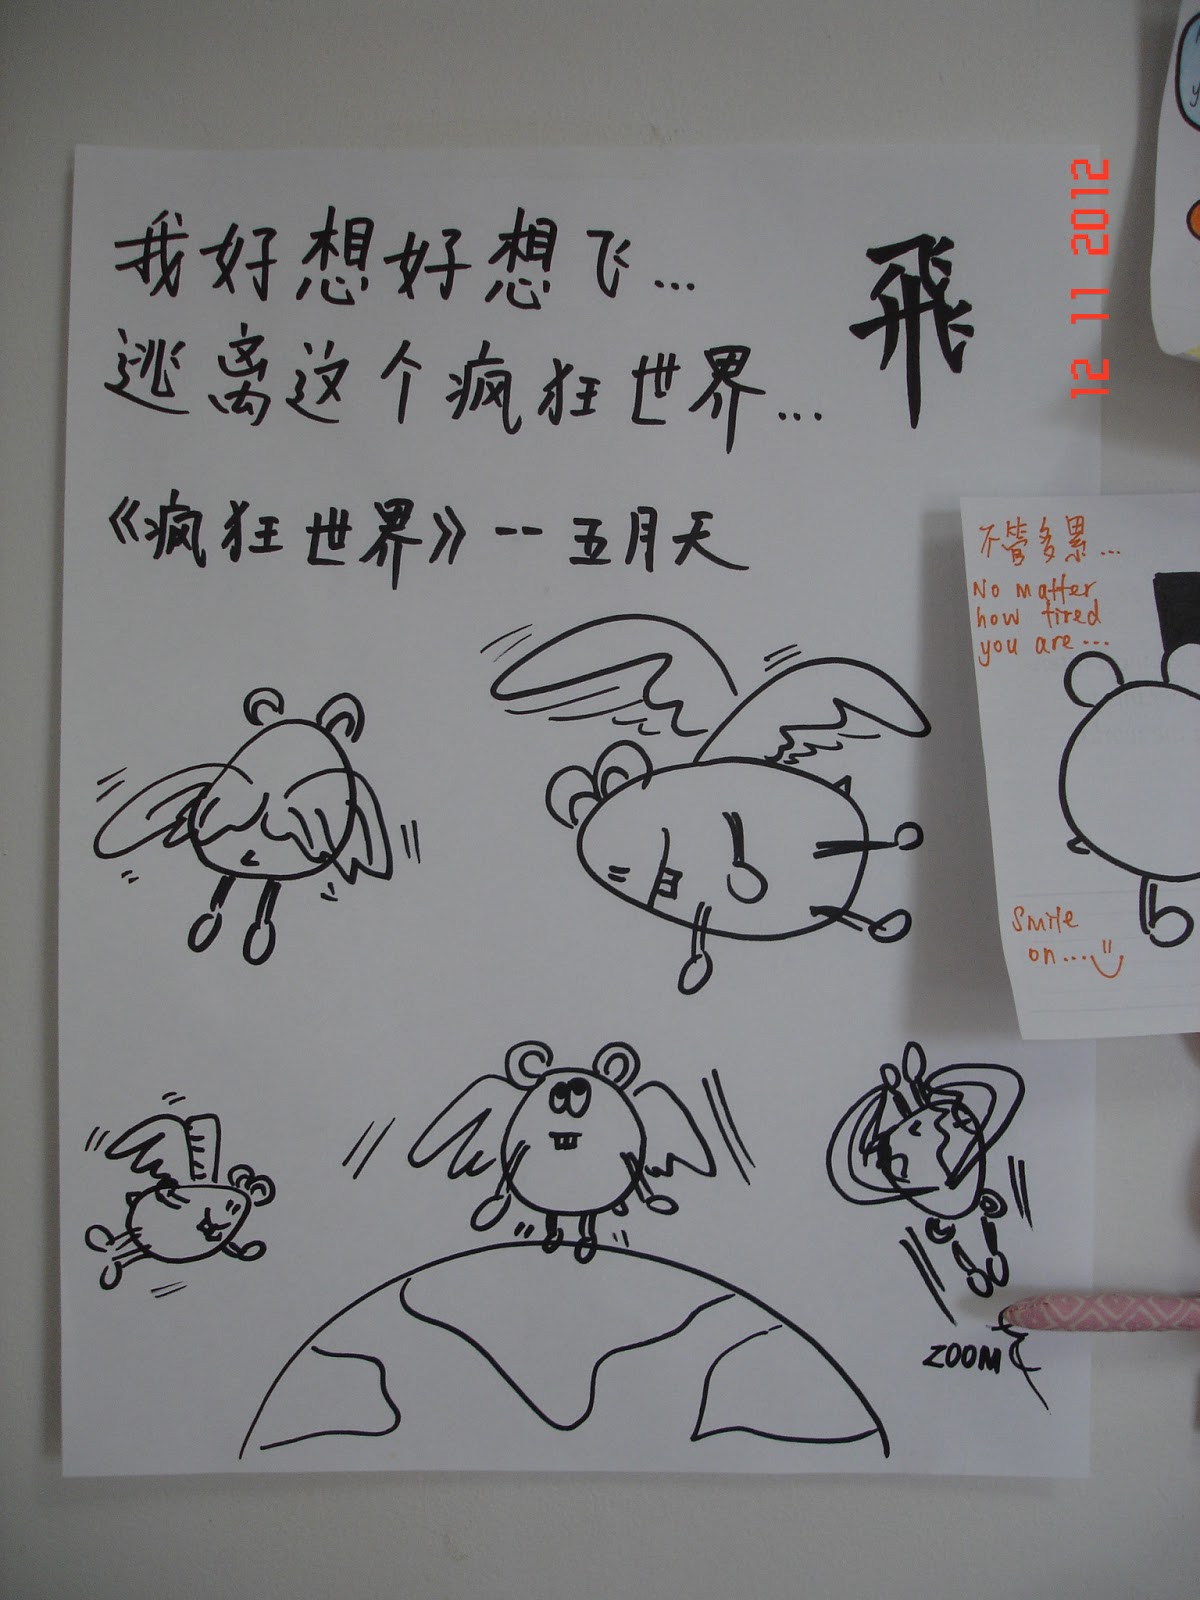 我好想好想飞...
逃离这个疯狂世界...
飛
《疯狂世界》--五月天
12 11 2012
不管多累...
No matter
how tired
you are...
Smile
on...
ZOOM